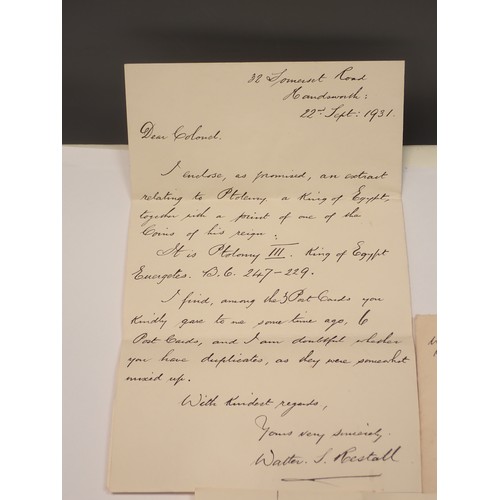 32 Somerset Road
Handsworth:
22nd Sept: 1931.
Dear Colonel.
I enclose, as promised, an extract
relating to Ptolemy a King of Egypt,
together with a print of one of the
Coins of his reign:
It is Ptolomy III. King of Egypt
Euergetes. B.C. 247-229.
I find, among the Post Cards you
Kindly gave to me some time ago, 6
Post Cards, and I am doubtful whether
you have duplicates, as they were somewhat
mixed up.
With Kindest regards,
Yours very sincerely.
Walter. S. Restall